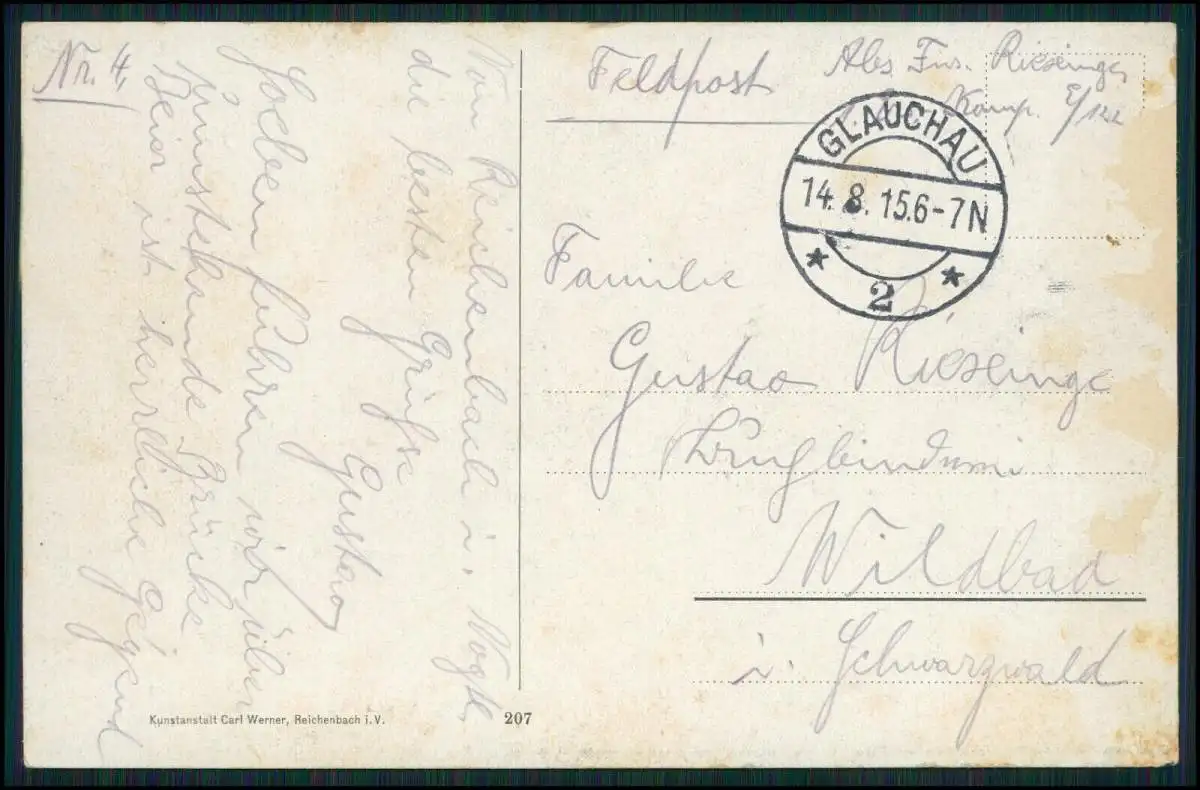 Nr. 4.
Von Reichenbach i. Vogtl.
die besten Grüsse
Gustav
Soeben fuhren wir über
umstehende Brücke
Hier ist herrliche Gegend
Kunstanstalt Carl Werner, Reichenbach i. V.
207
Feldpost
Abs Füs. Riesinger
Komp. /122
GLAUCHAU
14. 8. 15.6-7N
* 2 *
Familie
Gustav Riexinger
Wildbad
i. Schwarzwald